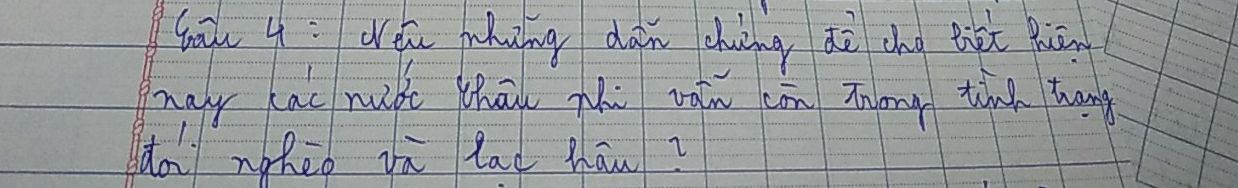 Câu 4: Nêu những dẫn chứng để cho biết hiện
nay các nước Châu phi vẫn còn trong tình trạng
đói nghèo và lạc hậu?